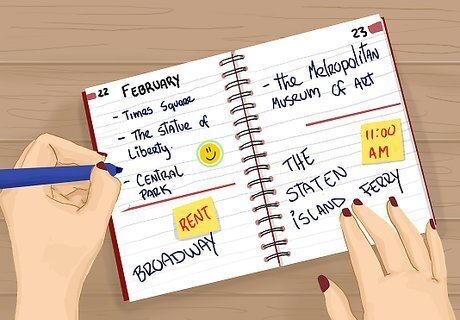 22 FEBRUARY
- TIMES SQUARE
- THE STATUE OF
LIBERTY.
- CENTRAL
PARK
RENT
BROADWAY
23
- THE METROPOLITAN
MUSEUM OF ART
11:00
AM
THE
STATEN
ISLAND FERRY